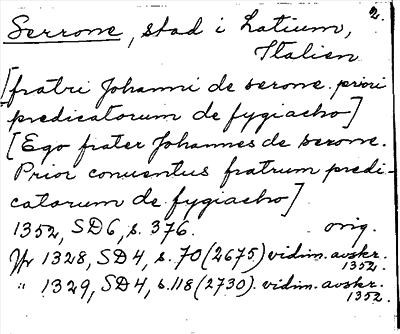 2.
Serrone, stad i Latium,
Italien
[fratri Johanni de serone. priori
predicatorum de fygiacho]
[Ego frater Johannes de serone.
Prior conuentus fratrum predi-
catorum de fygiacho]
1352, SD6, s. 376. orig.
Yr 1328, SD4, s. 70 (2675) vidim. avskr. 1352.
" 1329, SD4, s. 118 (2730). vidim. avskr. 1352.